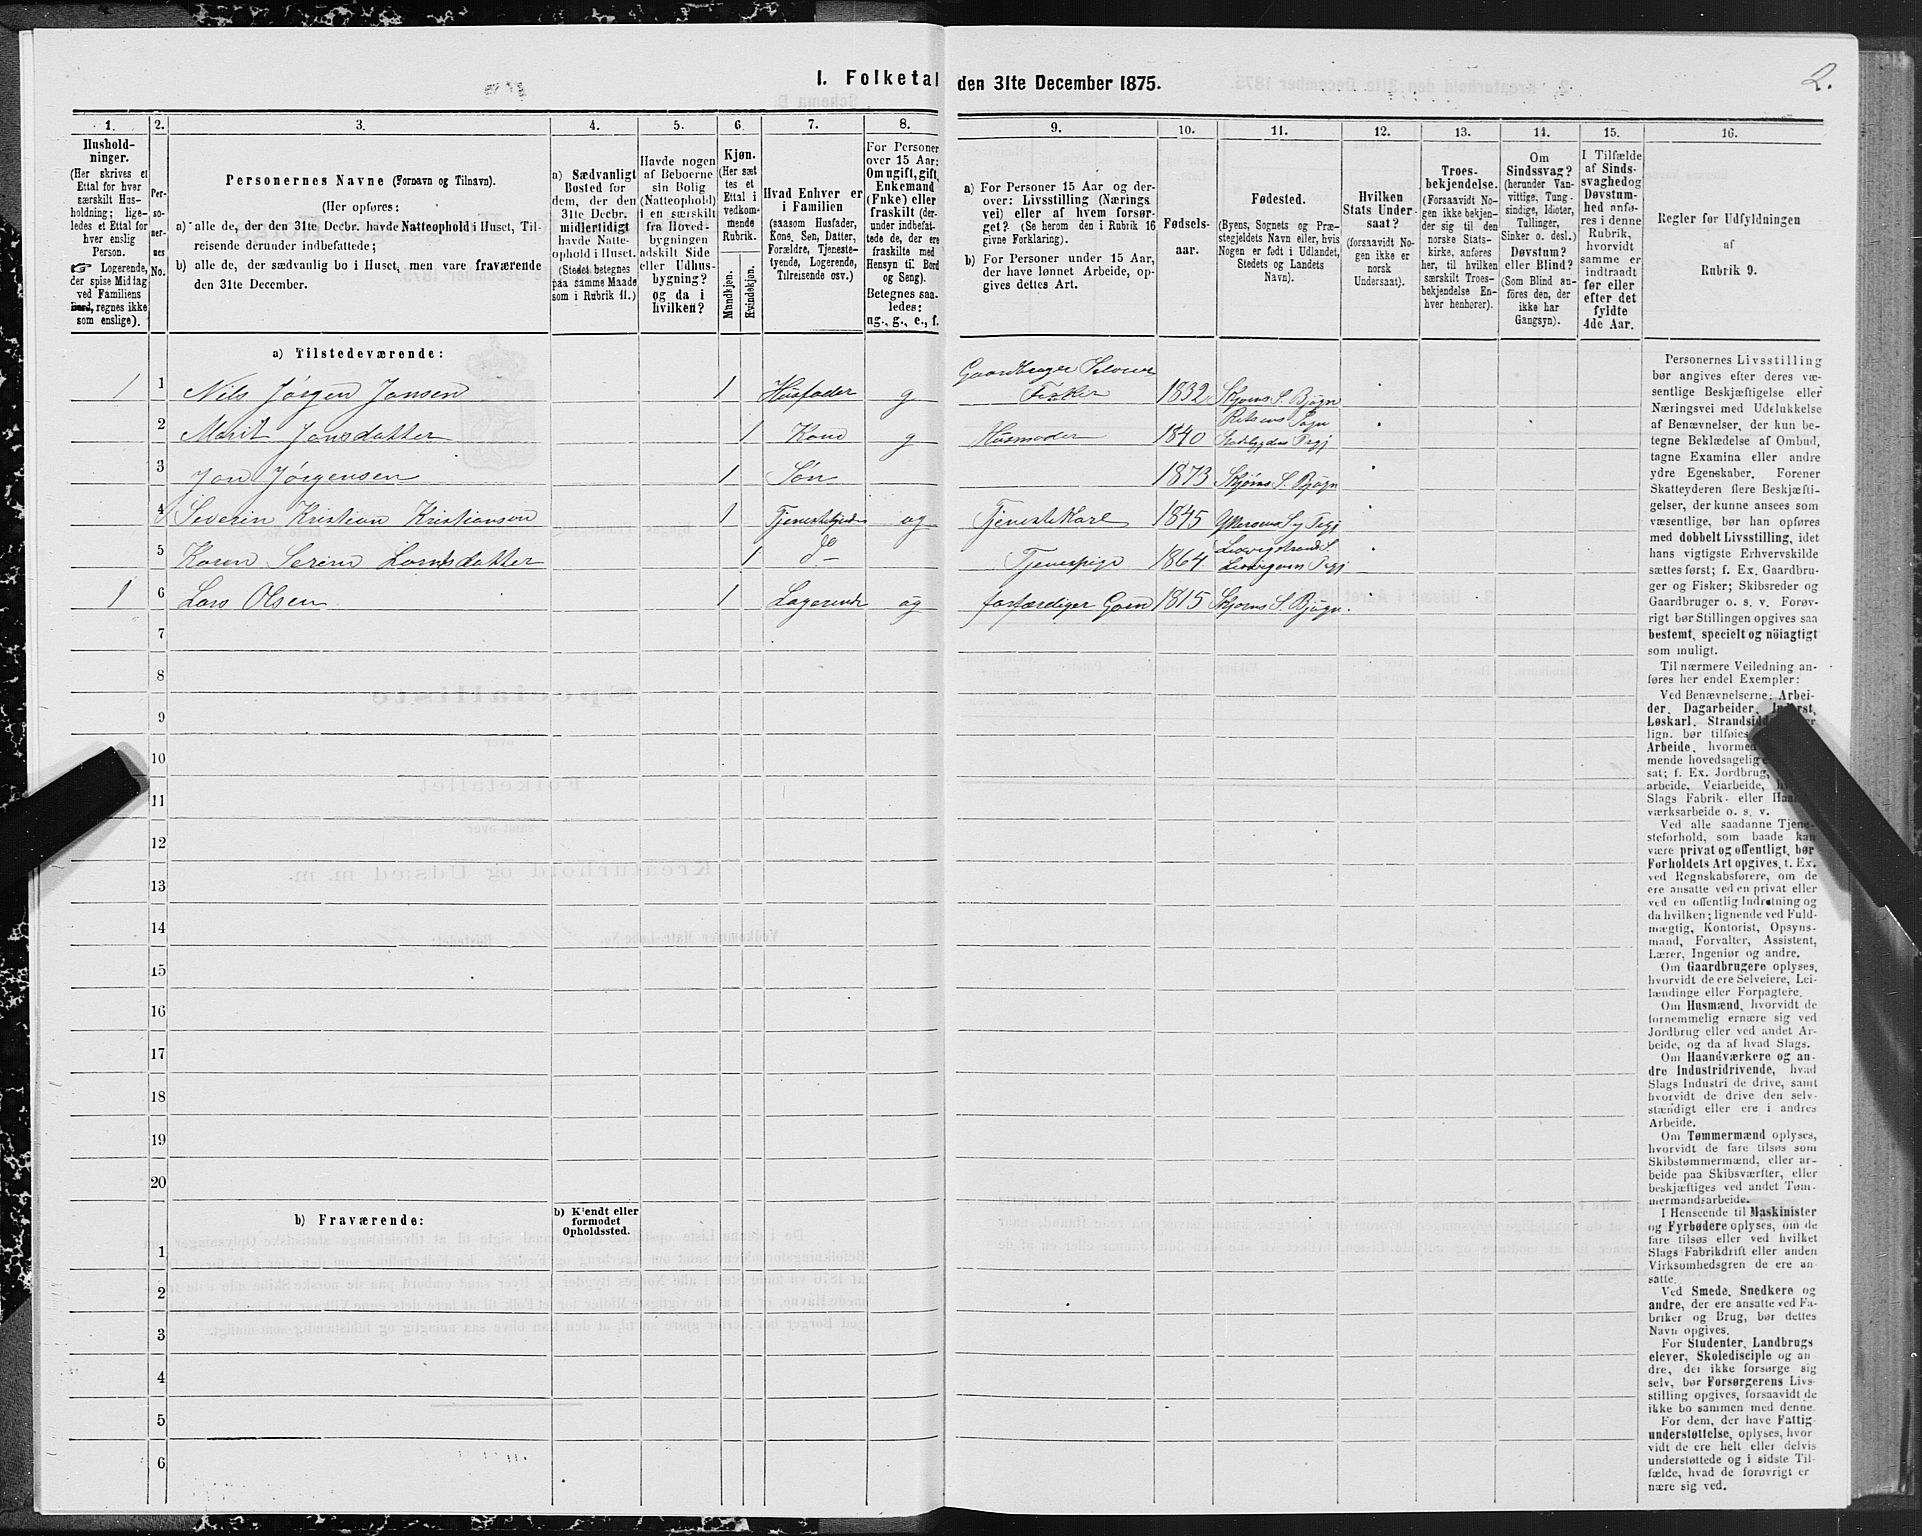 I. Folketal den 31te December 1875.
2.
1.
Hushold-
ninger.
(Her skrives et
Ettal for hver
særskilt Hus-
holdning; lige-
ledes et Ettal for
hver enslig
Person.
☞ Logerende,
der spise Middag
ved Familiens
Bord, regnes ikke
som enslige).
2.
Per-
so-
ner-
nes
No.
3.
Personernes Navne (Fornavn og Tilnavn).
(Her opføres:
a) alle de, der den 31te Decbr. havde Natteophold i Huset, Til-
reisende derunder indbefattede;
b) alle de, der sædvanlig bo i Huset, men vare fraværende
den 31te December.
4.
a) Sædvanligt
Bosted for
dem, der den
31te Decbr.
midlertidigt
havde Natte-
ophold i Huset.
(Stedet betegnes
paa samme Maade
som i Rubrik 11.)
5.
Havde nogen
af Beboerne
sin Bolig
(Natteophold)
i en særskilt
fra Hoved-
bygningen
adskilt Side
eller Udhus-
bygning?
og da i
hvilken?
6.
Kjøn.
(Her sæt
tes et
Ettal i
vedkom-
mende
Rubrik.
Mandkjøn.
Kvindekjøn.
7.
Hvad Enhver er
i Familien
(saasom Husfader,
Kone, Søn, Datter,
Forældre, Tjeneste-
tyende, Logerende,
Tilreisende osv.)
8.
For Personer
over 15 Aar:
Om ugift, gift,
Enkemand
(Enke) eller
fraskilt (der-
under indbefat-
tede de, der ere
fraskilte med
Hensyn til Bord
og Seng).
Betegnes saa-
ledes:
ug., g., e., f.
9.
a) For Personer 15 Aar og der-
over: Livsstilling (Nærings-
vei) eller af hvem forsør-
get? (Se herom den i Rubrik 16
givne Forklaring).
b) For Personer under 15 Aar,
der have lønnet Arbeide, op-
gives dettes Art.
10.
Fødsels-
aar.
11.
Fødested.
(Byens, Sognets og Præ-
stegjeldets Navn eller, hvis
Nogen er født i Udlandet,
Stedets og Landets
Navn).
12.
Hvilken
Stats Under-
saat?
(forsaavidt No-
gen ikke er
norsk
Undersaat).
13.
Troes-
bekjendelse.
(Forsaavidt No-
gen ikke bekjen-
der sig til den
norske Stats-
kirke, anføres
her, til hvilken
særskilt Troes-
bekjendelse En-
hver henhører).
14.
Om
Sindssvag?
(herunder Van-
vittige, Tung-
sindige, Idioter,
Tullinger,
Sinker o. desl.)
Døvstum?
eller Blind?
(Som Blind an-
føres den, der
ikke har
Gangsyn).
15.
I Tilfælde
af Sinds-
svaghed og
Døvstum-
hed anfø-
res i denne
Rubrik,
hvorvidt
samme er
indtraadt
før eller
efter det
fyldte
4de Aar.
16.
Regler for Udfyldningen
af
Rubrik 9.
a) Tilstedeværende:
1 1 Nils Jørgen Jonsen 1 Husfader g Gaardbruger Selveier
Fisker 1832 Skjørns S. Bjugn
2 Marit Jonsdatter 1 Kone g Husmoder 1840 Rissens Sogn
Stadsbygdens Prgj
3 Jon Jørgensen 1 Søn 1873 Skjørns S. Bjugn
4 Severin Kristian Kristianson 1 Tjenestetyende ug Tjenestekarl 1845
5 Karen Serine 1 do Tjenespige 1864
1 6 Lars Olsen 1 Logerende ug forfærdiger Garn 1815 Skjørns S. Bjugn.
7
8
9
10
11
12
13
14
15
16
17
18
19
20
b) Fraværende:
b) Kjendt eller
formodet
Opholdssted.
1
2
3
4
5
6
Personernes Livsstilling
bør angives efter deres væ-
sentlige Beskjæftigelse eller
Næringsvei med Udelukkelse
af Benævnelser, der kun be-
tegne Beklædelse af Ombud,
tagne Examina eller andre
ydre Egenskaber. Forener
Skatteyderen flere Beskjæfti-
gelser, der kunne ansees som
væsentlige, bør han opføres
med dobbelt Livsstilling, idet
hans vigtigste Erhvervskilde
sættes først; f. Ex. Gaardbru-
ger og Fisker; Skibsreder og
Gaardbruger o. s. v. Forøv-
rigt bør Stillingen opgives saa
bestemt, specielt og nöiagtigt
som muligt.
Til nærmere Veiledning an-
føres her endel Exempler:
Ved Benævnelserne: Arbei-
der, Dagarbeider, Inderst,
Løskarl, Strandsidder
lign. bør tilføies
Arbeide, hvormed
mende hovedsagelig
sat; f. Ex. Jordbrug,
arbeide, Veiarbeide,
Slags Fabrik- eller
værksarbeide o. s. v.
Ved alle saadanne Tjene-
steforhold, som baade kan
være privat og offentligt, bør
Forholdets Art opgives, t. Ex.
ved Regnskabsførere, om de
ere ansatte ved en privat eller
ved en offentlig Indretning og
da hvilken; lignende ved Fuld-
mægtig, Kontorist, Opsyns-
mand, Forvalter, Assistent,
Lærer, Ingeniør og andre.
Om Gaardbrugere oplyses,
hvorvidt de ere Selveiere, Lei-
lændinge eller Forpagtere.
Om Husmænd, hvorvidt de
fornemmelig ernære sig ved
Jordbrug eller ved andet Ar-
beide, og da af hvad Slags.
Om Haandværkere og an-
dre Industridrivende, hvad
Slags Industri de drive, samt
hvorvidt de drive den selv-
stændigt eller ere i andres
Arbeide.
Om Tømmermænd oplyses,
hvorvidt de fare tilsøs som
Skibstømmermænd, eller ar-
beide paa Skibsværfter, eller
beskjæftiges ved andet Tøm-
mermandsarbeide.
I Henseende til Maskinister
og Fyrbødere oplyses, om de
fare tilsøs eller ved hvilket
Slags Fabrikdrift eller anden
Virksomhedsgren de ere an-
satte.
Ved Smede, Snedkere og
andre, der ere ansatte ved Fa-
briker og Brug, bør dettes
Navn opgives.
For Studenter, Landbrugs
elever, Skoledisciple og an
dre, der ikke forsørge sig
selv, bør Forsørgerens Livs-
stilling opgives, forsaavidt de
ikke bo sammen med denne.
For dem, der have Fattig-
understøttelse, oplyses, hvor
vidt de ere helt eller delvis
understøttede og i sidste Til-
fælde, hvad de forøvrigt er
nære sig ved.